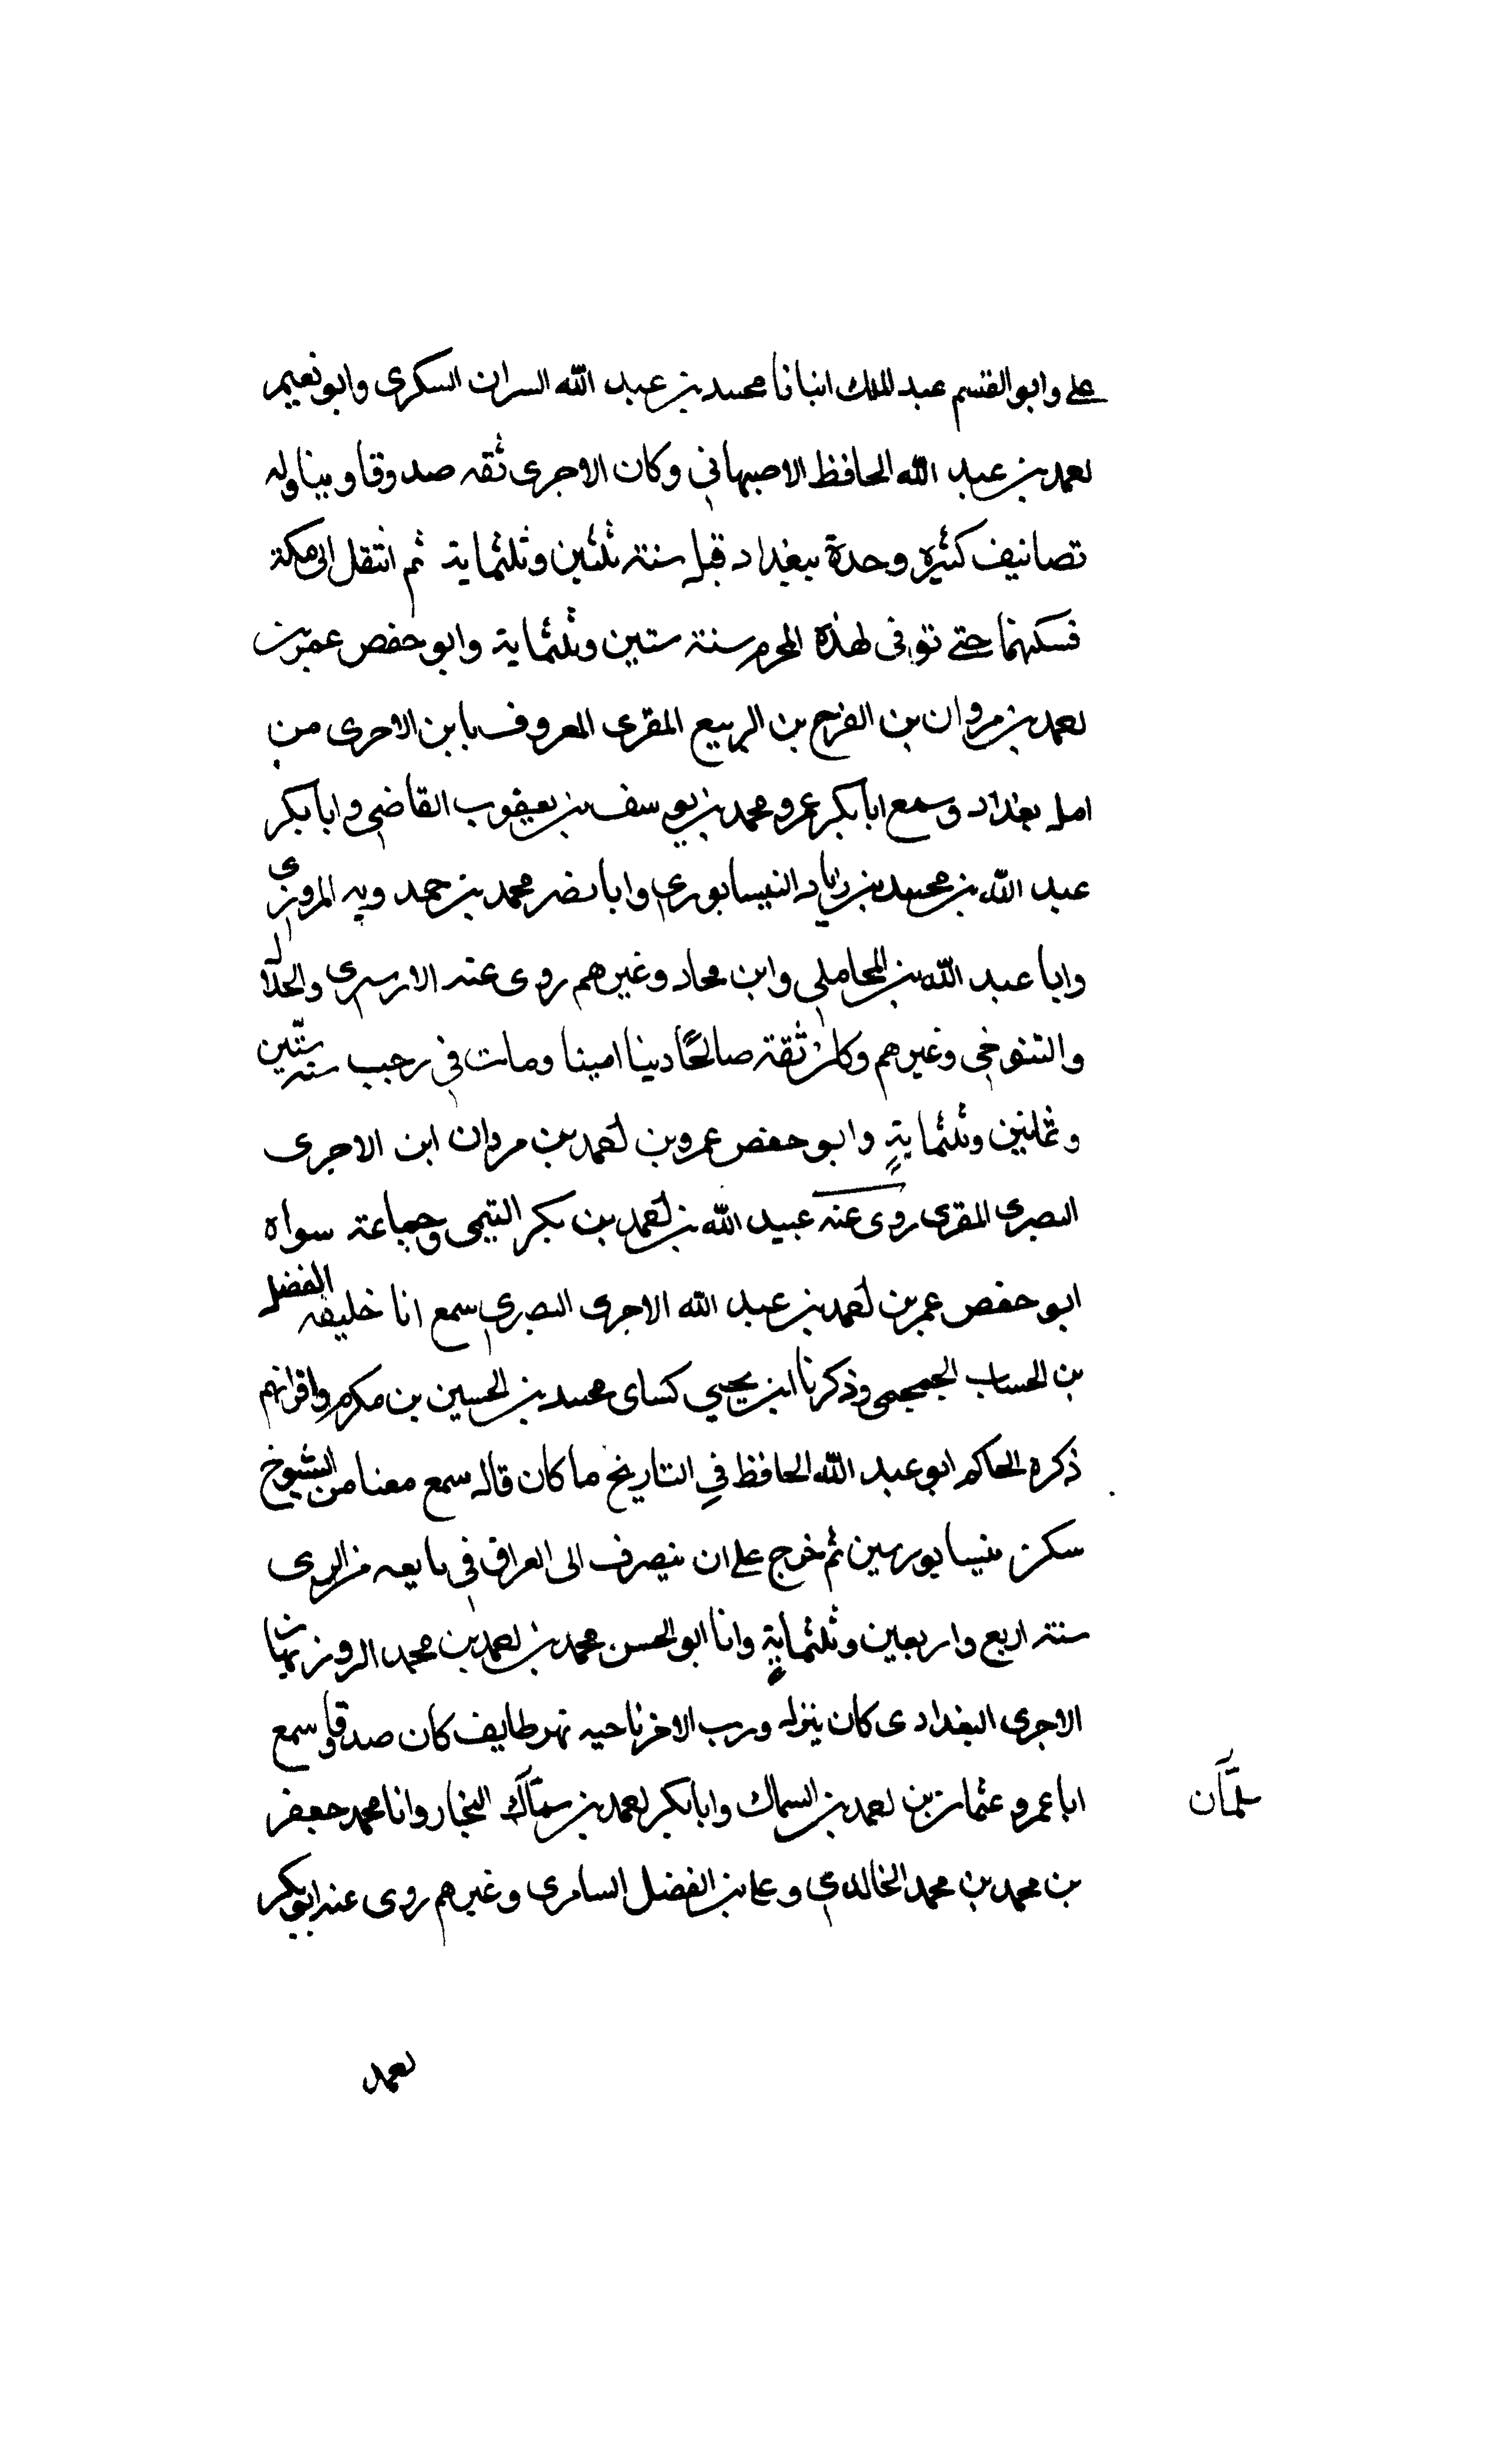 علي وابو القسم عبد الملك انبانا محمد بن عبد الله السران السكرى وابو نعيم
احمد بن عبد الله الحافظ الاصبهاني وكان الاجرى ثقه صدوقا وبنا وله
تصانيف كثيره وحدة ببغداد قبل سنة ثلثين وثلثماية ثم انتقل الى مكة
فسكنها حتى توفى لهذه المحرم سنة ستين وثلثماية وابو حفص عمر بن
احمد بن مروان بن الفرج بن الربيع المقرى المعروف بابن الاجرى من
اهل بغداد وسمع ابا بكر عمرو محمد بن يوسف بن يعقوب القاضي وابا بكر
عبد الله بن محمد بن زياد النيسابوري وابا نصر محمد بن حمدويه المروزى
وابا عبد الله بن المحاملي وابن مخلد وغيرهم روى عنه الازهرى والخلال
والتنوخي وغيرهم وكان ثقة صالحًا دينا امينا ومات في رجب سنة ستّين
وثمانين وثلثمايةٍ وابو حفص عمرو بن احمد بن مروان ابن الاجرى
البصرى المقرى روى عنه عبيد الله بن احمد بن بكر التيمى وجماعة سواه
ابو حفص عمر بن احمد بن عبد الله الاجرى البصري سمع انا خليفه الفضل
بن الحساب الجمحى وذكرنا ابن يحيي كساى محمد بن الحسين بن مكرم واقرانهم
ذكره الحاكم ابو عبد الله الحافظ في التاريخ ما كان قال سمع معنا من الشيوخ
سكن نيسابور سين ثم خرج على ان ينصرف الى العراق في بايعه من الرى
سنة اربع واربعين وثلثمايةٍ وانا ابو الحسن محمد بن احمد بن محمد الروزبهان
الاجرى البغدادى كان ينزل ورب الاخر ناحيه نهر طايف كان صدقا وسمع
ابا عمرو عثمان بن احمد بن السماك وابا بكر احمد بن سمّاك النجار وانا محمد جعفر
سلمَّان
بن محمد بن محمد الخالدي وعلى بن الفضل السامرى وغيرهم روى عنه ابو بكر
احمد